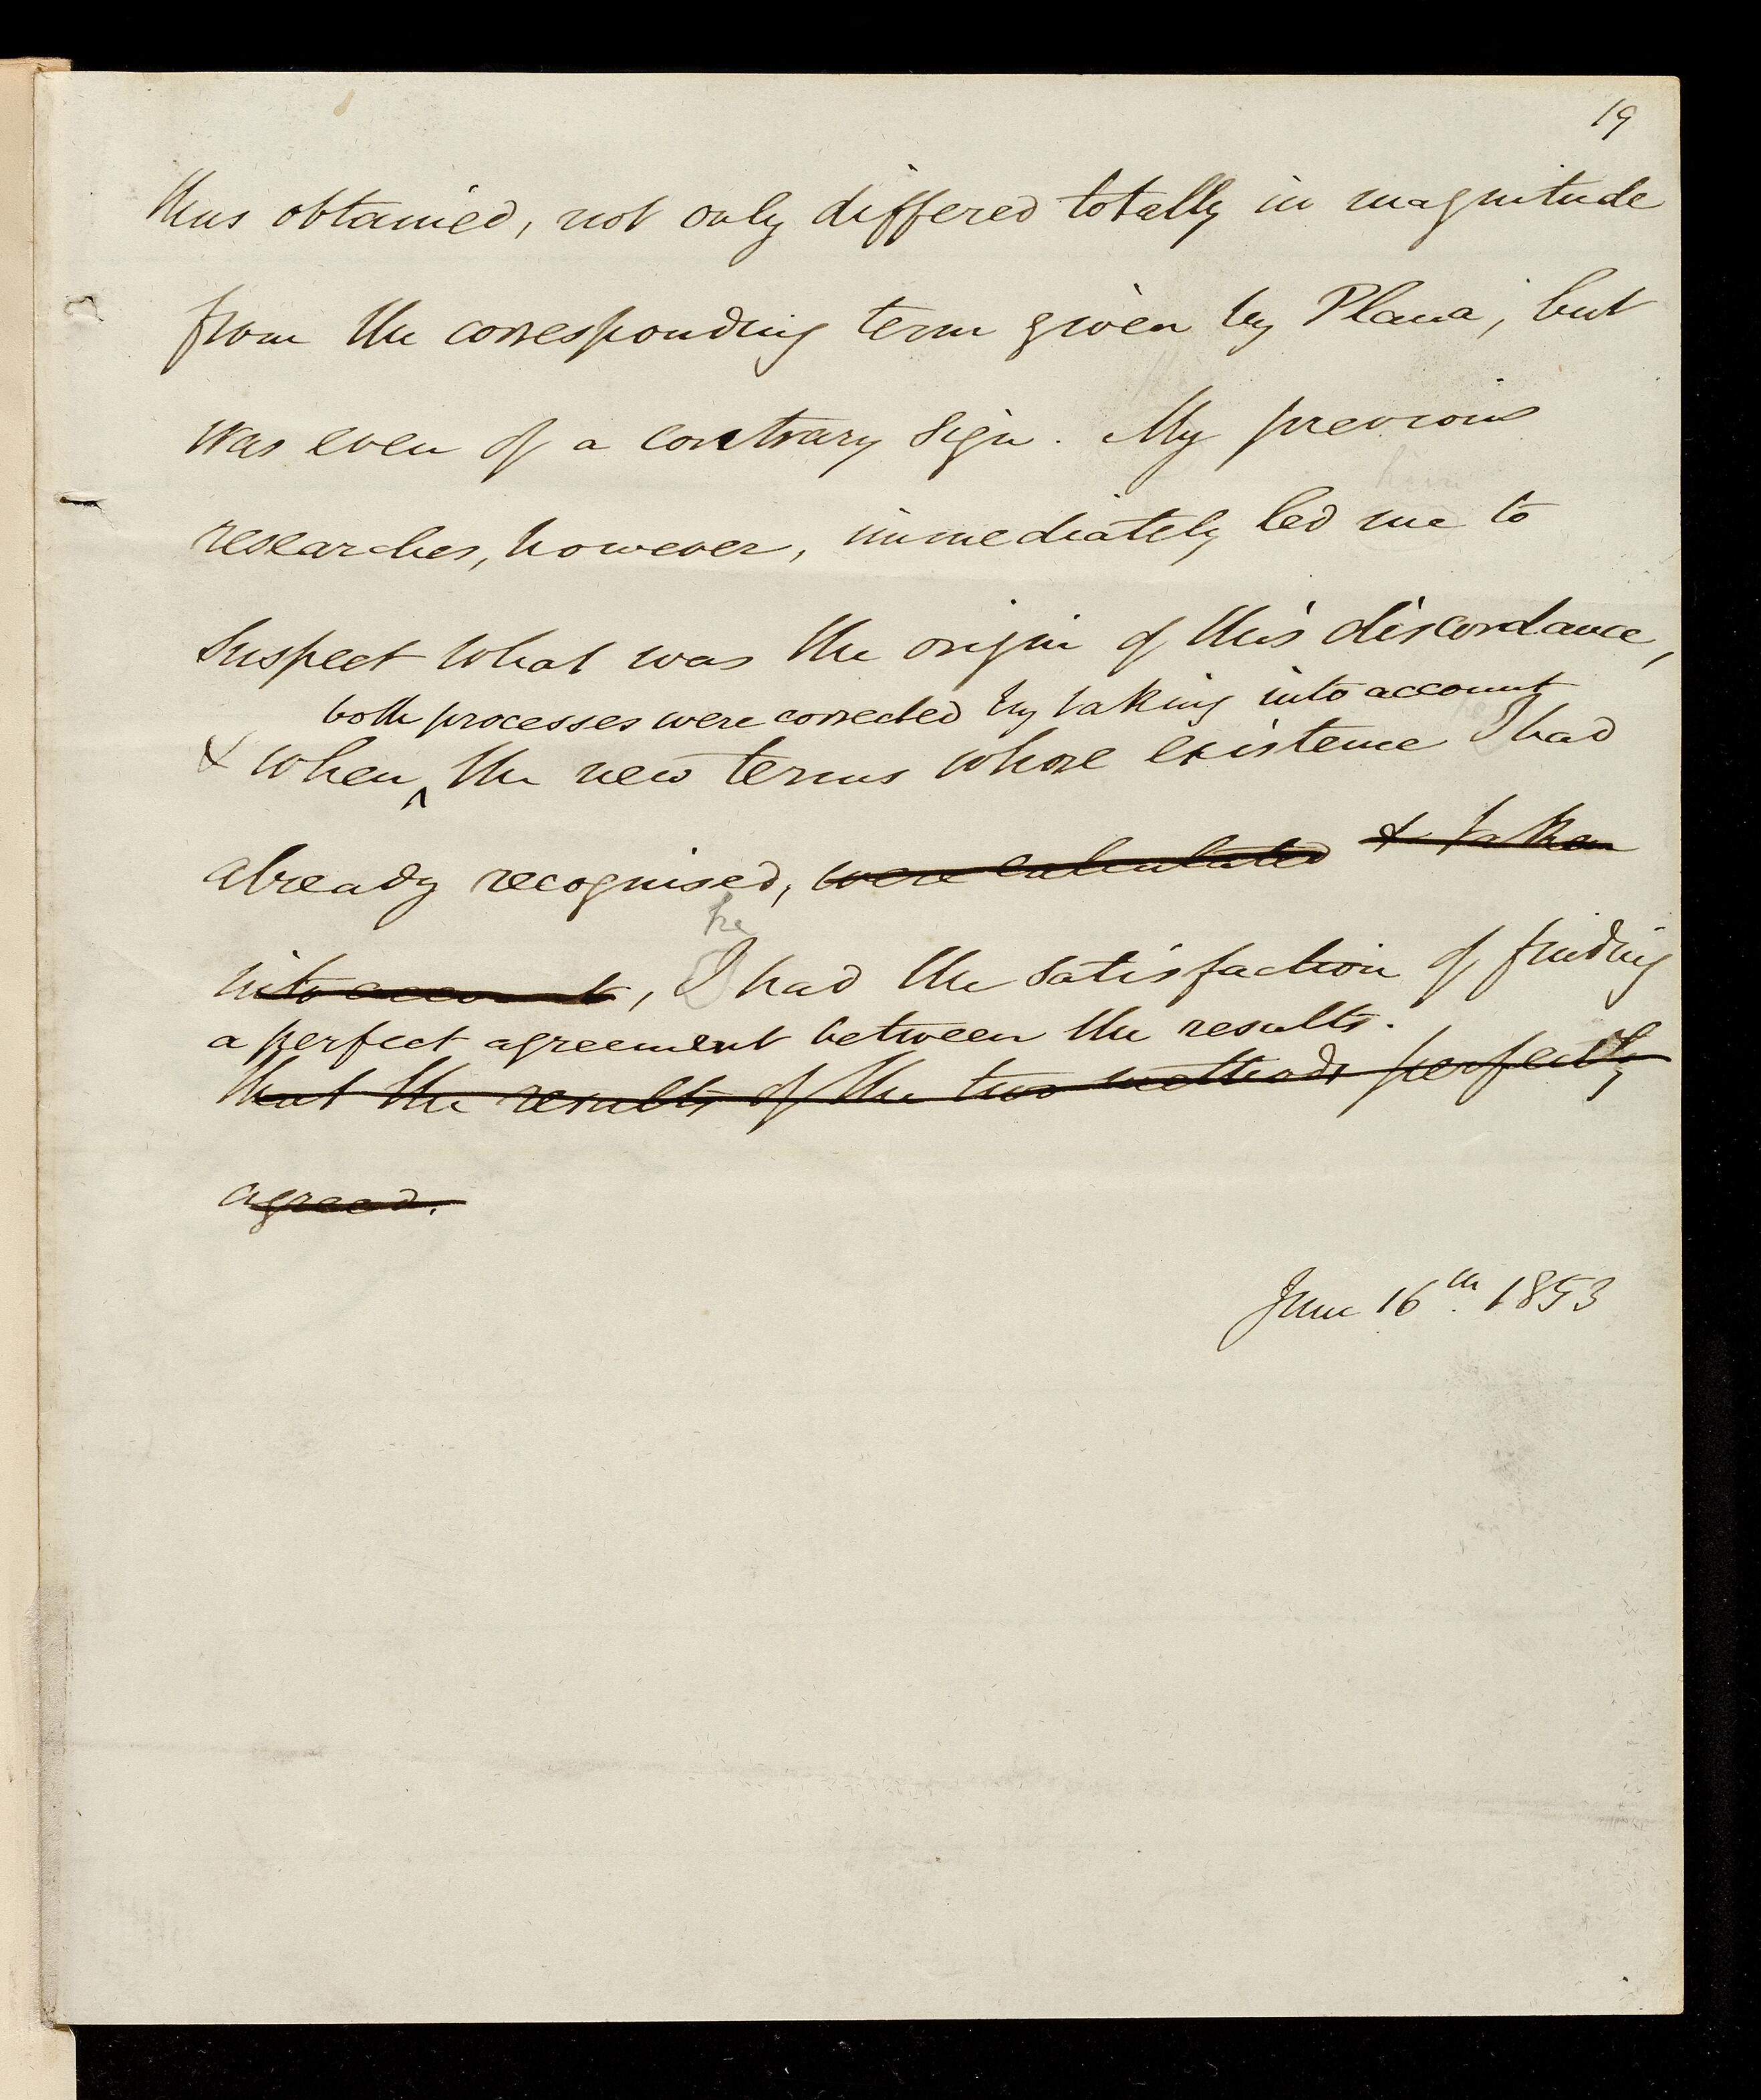 19
thus obtained, not only differed totally in magnitude
from the corresponding term given by Plana, but
was even of a contrary sign. My previous
him
researches, however, immediately led me to
suspect what was the origin of this discordance,
both processes were corrected by taking into account
& when ^ the new terms whose existence I had
already recognised, were calculated & taken
he
into account, I had the satisfaction of finding
a perfect agreement between the results.
that the results of the two methods perfectly
agreed.
June 16th. 1853